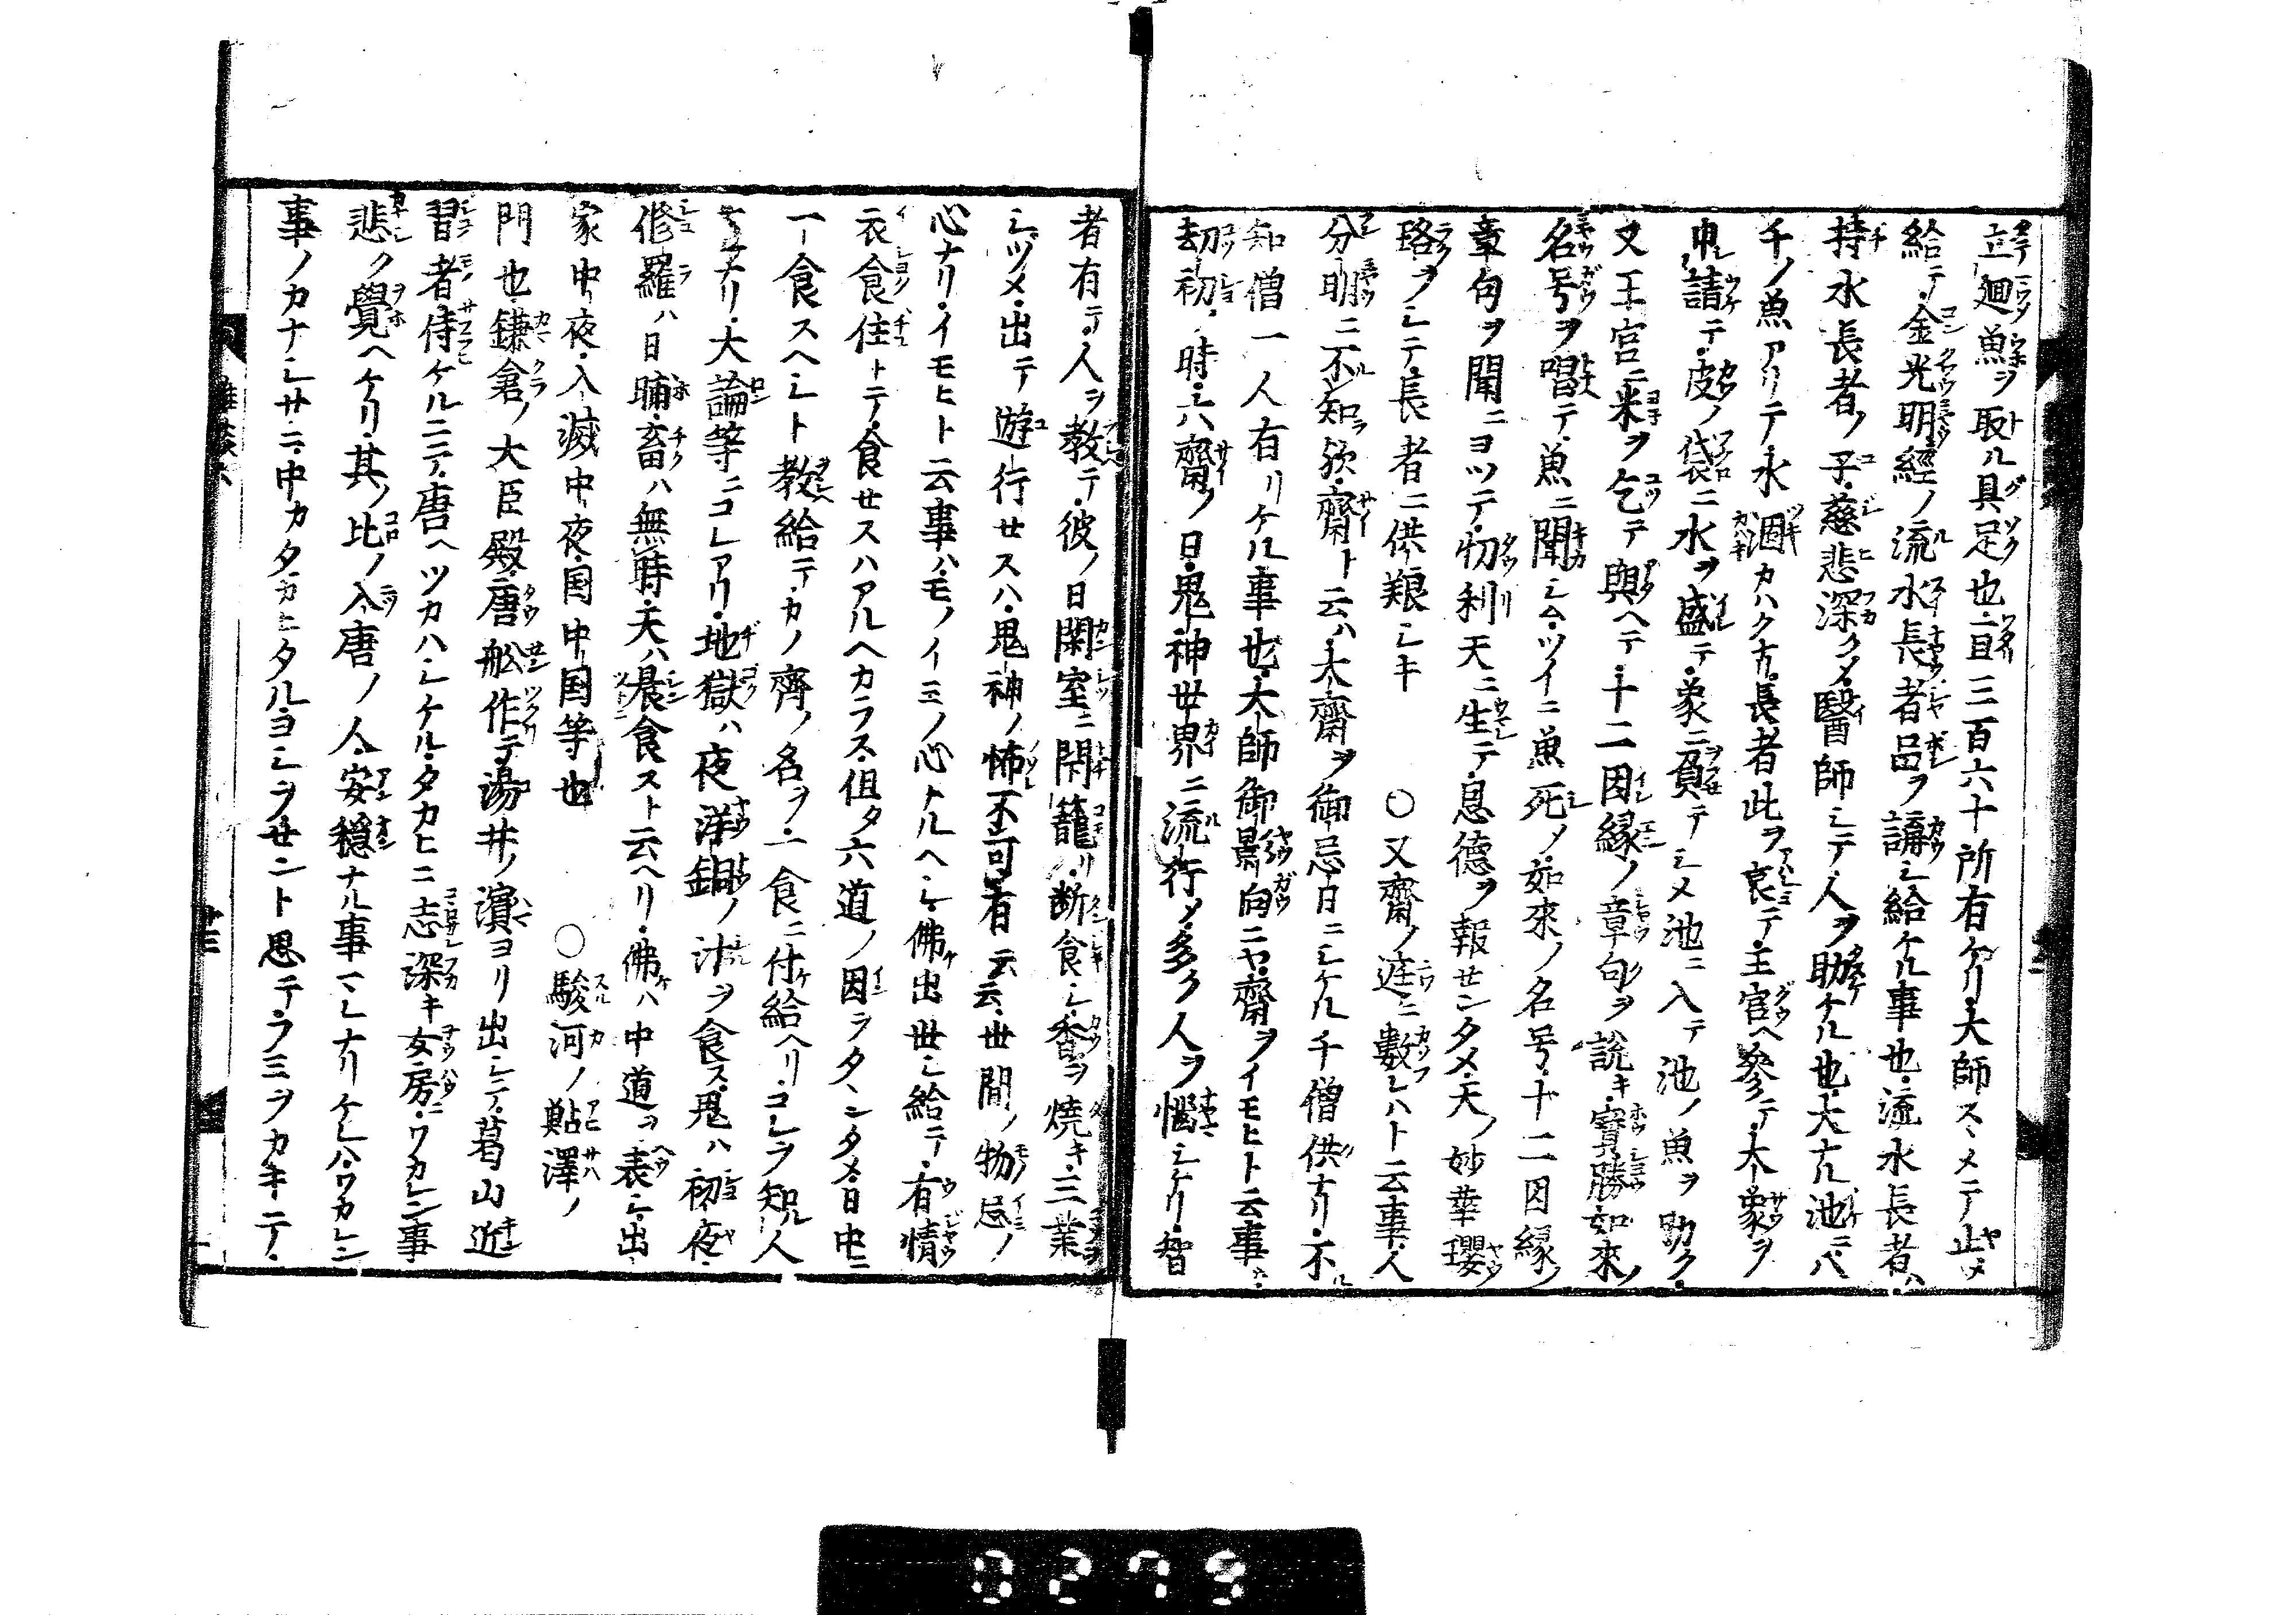 立廻魚ヲ取ル具足也・且三百六十所有ケリ・大師スヽメテ止メ
給テ・金光明經ノ流水長者品ヲ講シ給ケル事也・流水長者ハ
持水長者ノ子・慈悲深クメ・醫師シテ・人ヲ助ケル也・大ナル池ニ八
千ノ魚アリテ水涸カハクナル・長者此ヲ哀テ・王宮ヘ參テ・大象ヲ
申請テ・皮ノ袋ニ水ヲ盛テ・象ニ負テシメ池ニ入テ池ノ魚ヲ助ク・
又王宮ニ米ヲ乞テ與ヘテ・十二因縁ノ章句ヲ説キ・寳勝如來ノ
名号ヲ唱テ・魚ニ聞シム・ツイニ魚死メ・如來ノ名号・十二因縁ノ
章句ヲ聞ニヨツテ・忉利天ニ生テ・恩德ヲ報センタメ・天ノ妙華瓔
珞ヲフシテ・長者ニ供報シキ　○又齋ノ莚ニ數シハト云事・人
分明ニ不知欤・齋ト云ハ・大齋ヲ御忌日ニシケル千僧供ナリ・不
知僧一人有リケル事也・大師御影向ニヤ・齋ヲイモヒト云事ハ・
劫初ノ時・六齋ノ日・鬼神世界ニ流行メ・多ク人ヲ惱シケリ・智
者有テ人ヲ教テ・彼ノ日閑室ニ閇籠リ・断食シ・香ヲ燒キ・三業ヲ
シヅメ・出テ遊行セスハ・鬼神ノ怖不可有云云・世間ノ物忌ノ
心ナリ・イモヒト云事ハ・モノイミノ心トルヘシ・佛出世シ給テ・有情
衣食住トテ・食セスハアルヘカラス・但タ六道ノ因ヲタヽンタメ・日中ニ
一食スヘシト教給テ・カノ齊ノ名ヲ・一食ニ付給ヘリ・コレヲ知ル人
ナリ・大論等ニコレアリ・地獄ハ夜洋銅ノ汁ヲ食ス・鬼ハ初夜・
修羅ハ日晡・畜ハ無時・天ハ晨食スト云ヘリ・佛ハ中道ヲ表シ・出
家中夜・入滅中夜・国中国等也　○駿河ノ鮎澤ノ
門也・鎌倉ノ大臣殿・唐舩作テ湯井ノ濱ヨリ出シテ・葛山近
習者・侍ケルニテ・唐ヘツカハシケル・タカヒニ志深キ女房ニ・ワカレン事
悲ク覺ヘケリ・其ノ比ノ入唐ノ人・安穏ナル事マレナリケレハ・ワカレン
事ノカナシサニ・中カタカヒタルヨシヲセント思テ・フミヲカキテ・
0273